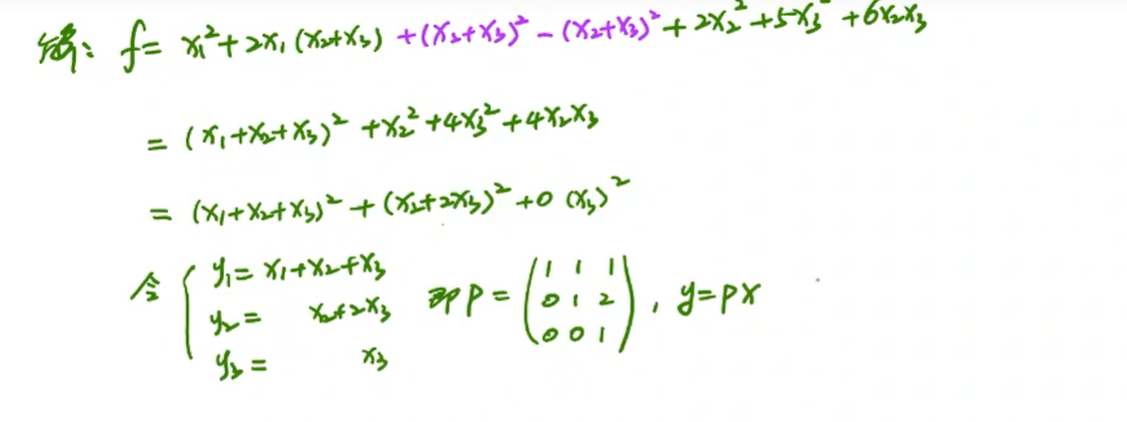 解: f= x₁²+2x₁(x₂+x₃)+(x₂+x₃)²-(x₂+x₃)²+2x₂²+5x₃²+6x₂x₃
= (x₁+x₂+x₃)²+x₂²+4x₃²+4x₂x₃
= (x₁+x₂+x₃)²+(x₂+2x₃)²+0(x₃)²
令 { y₁= x₁+x₂+x₃
y₂= x₂+2x₃ 即P= (1 1 1; 0 1 2; 0 0 1), y=PX
y₃= x₃